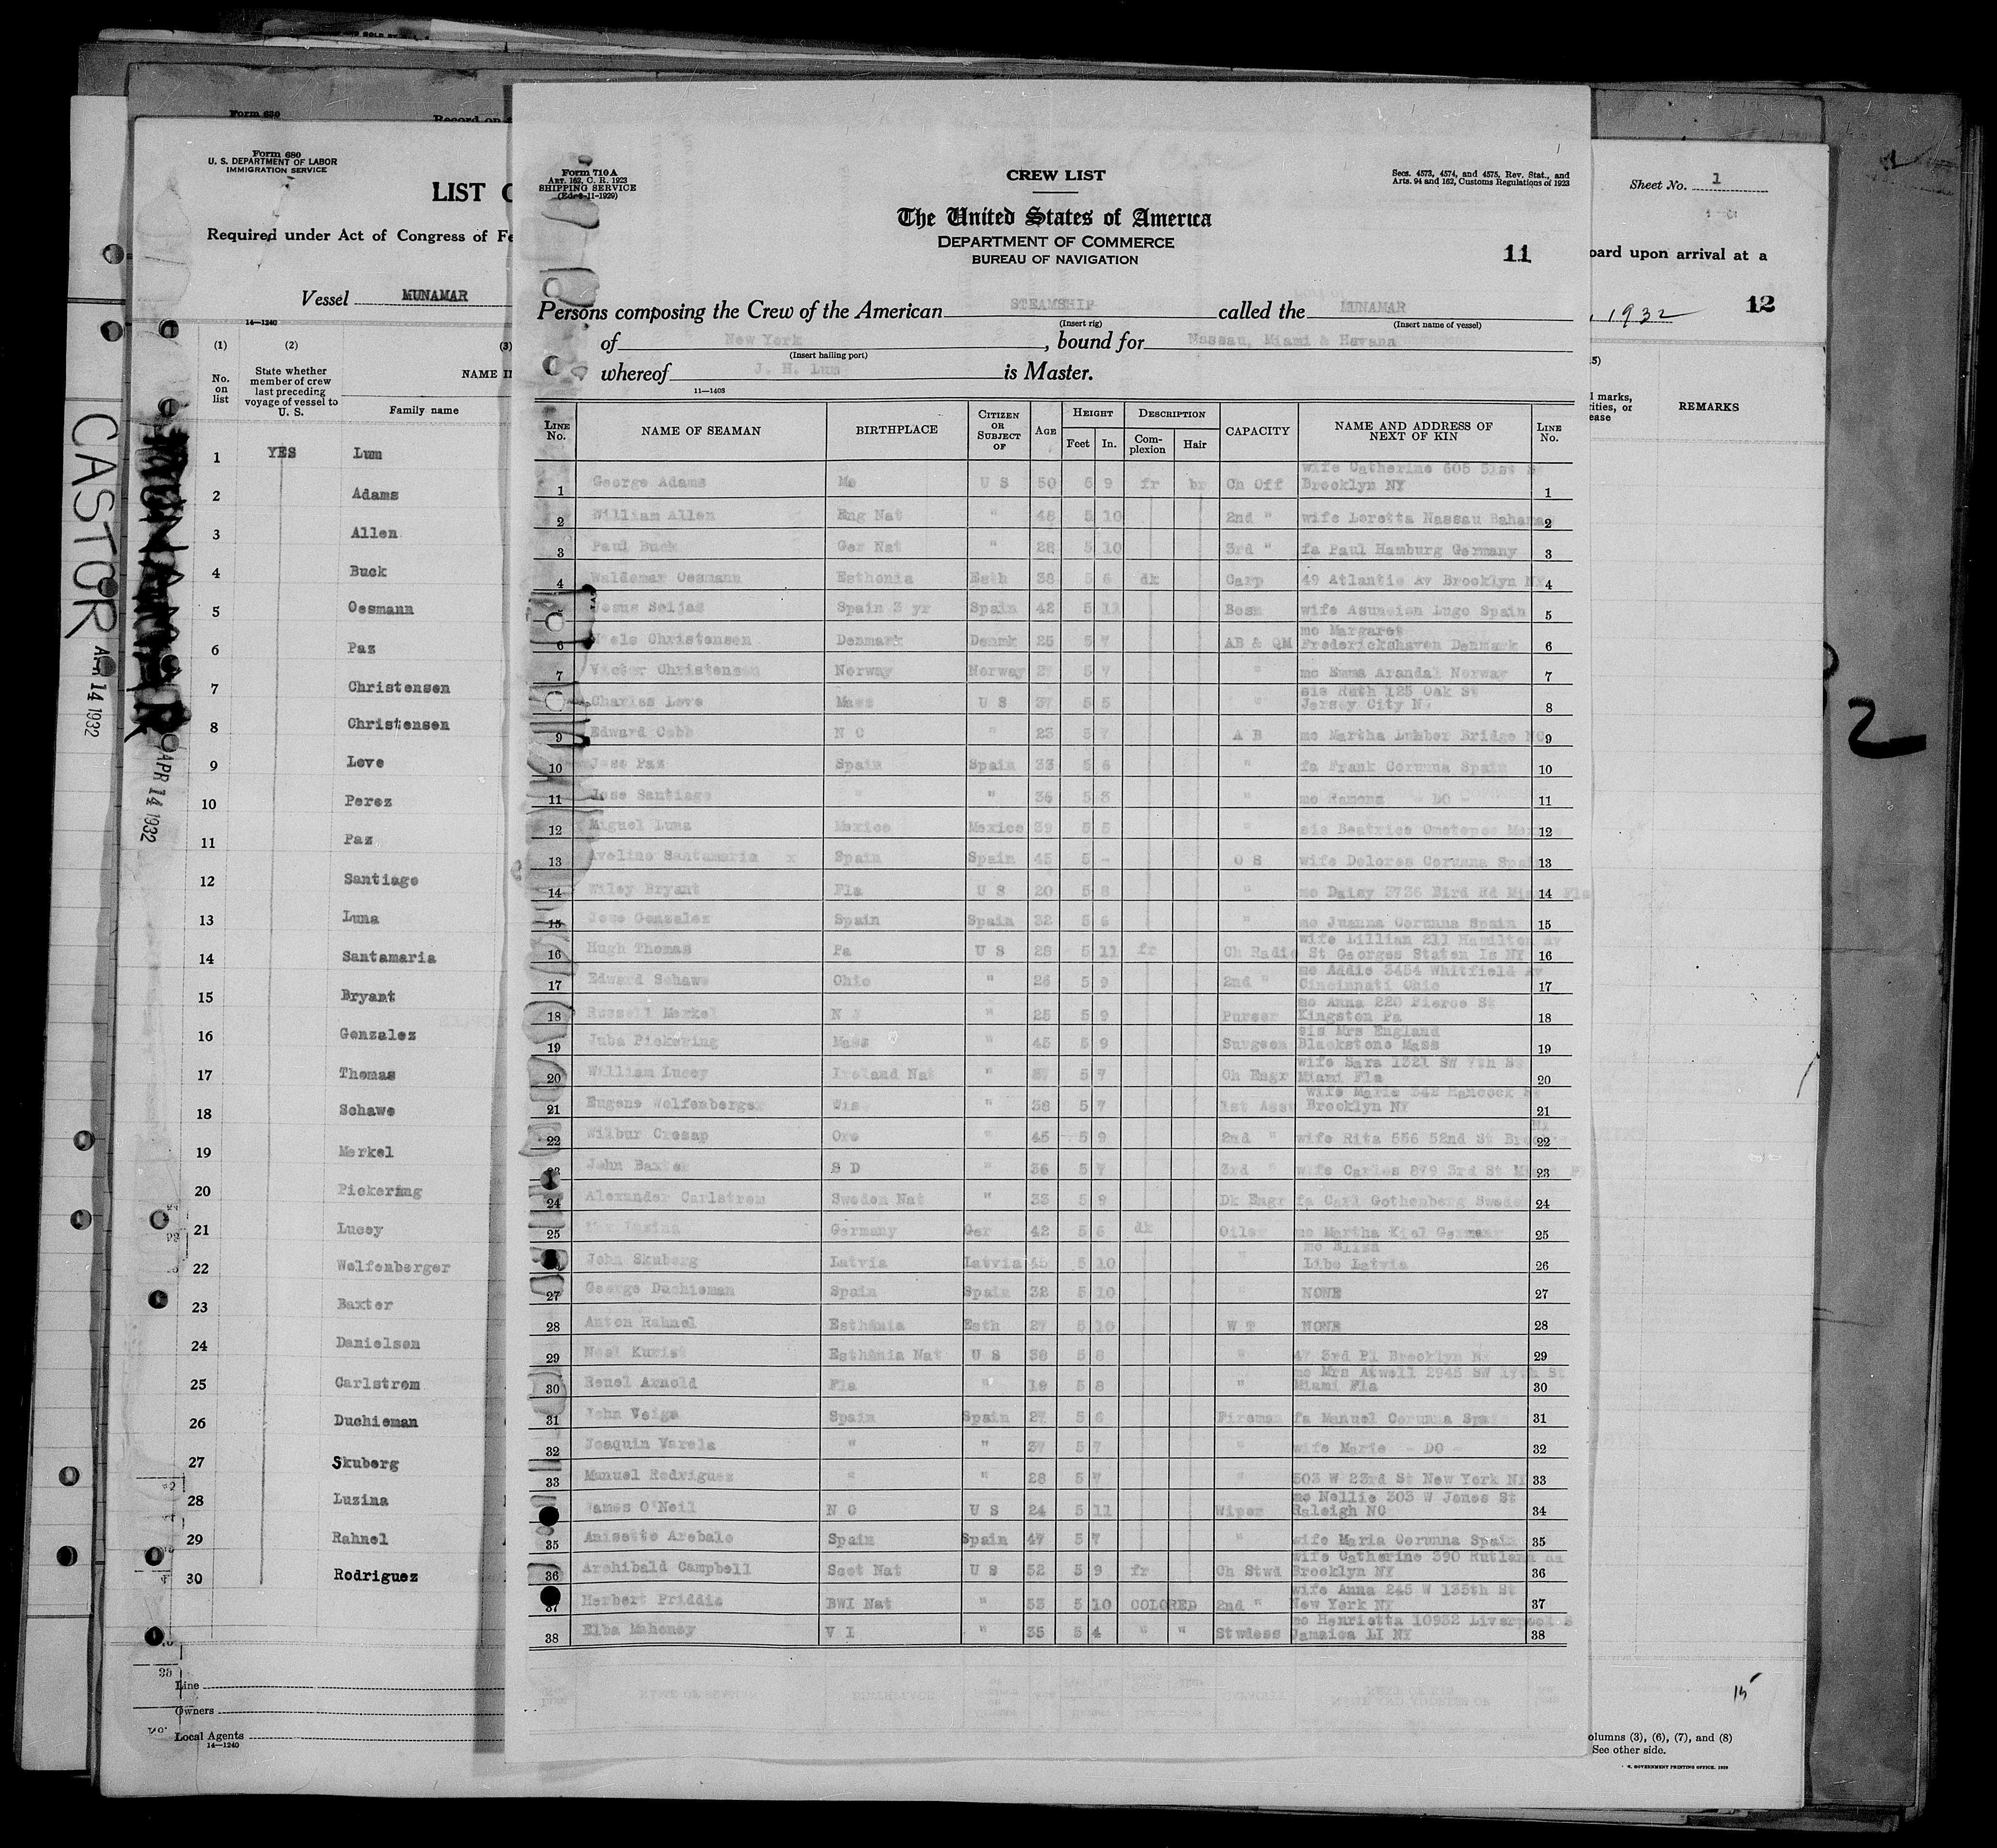 Form 630
Record on
Form 680
U. S. DEPARTMENT OF LABOR
IMMIGRATION SERVICE
LIST
Required under Act of Congress of Fe
Vessel MUNAMAR
14—1240
(1) (2) (3)
No. on list
State whether member of crew last preceding voyage of vessel to U. S.
NAME I
Family name
1 YES Lum
2 Adams
3 Allen
4 Buck
5 Oesmann
6 Paz
7 Christensen
8 Christensen
9 Love
10 Perez
11 Paz
12 Santiago
13 Luna
14 Santamaria
15 Bryant
16 Gonzalez
17 Thomas
18 Schawe
19 Merkel
20 Pickering
21 Lucey
22 Wolfenberger
23 Baxter
24 Danielson
25 Carlstrom
26 Duchieman
27 Skuberg
28 Luzina
29 Rahnel
30 Rodriguez
Line
Owners
Local Agents
14—1240
CASTOR
APR 14 1932
MUNAMAR
APR 14 1932
Form 710 A
ART. 162, C. R. 1923
SHIPPING SERVICE
CREW LIST
Secs. 4573, 4574, and 4575, Rev. Stat., and
Arts. 94 and 162, Customs Regulations of 1923
The United States of America
DEPARTMENT OF COMMERCE
BUREAU OF NAVIGATION
11
Persons composing the Crew of the American STEAMSHIP called the MUNAMAR
(Insert rig) (Insert name of vessel)
of New York, bound for Nassau, Miami & Havana
(Insert hailing port)
whereof J. H. Lum is Master.
11—1408
LINE No. NAME OF SEAMAN BIRTHPLACE CITIZEN OR SUBJECT OF AGE HEIGHT DESCRIPTION CAPACITY NAME AND ADDRESS OF NEXT OF KIN LINE No.
Feet In. Complexion Hair
1 George Adams Me U S 50 5 9 fr br Ch Off wife Catherine 605 51st S Brooklyn NY 1
2 William Allen Eng Nat " 48 5 10 2nd " wife Loretta Nassau Bahamas 2
3 Paul Buck Ger Nat " 28 5 10 3rd " fa Paul Hamburg Germany 3
4 Waldemar Oesmann Esthonia Esth 38 5 6 dk Carp 49 Atlantic Av Brooklyn NY 4
5 Jesus Seijas Spain 3 yr Spain 42 5 11 Bosn wife Asuncion Lugo Spain 5
6 Niels Christensen Denmark Denmk 25 5 7 AB & QM mo Margaret Frederickshaven Denmark 6
7 Victor Christensen Norway Norway 27 5 7 " mo Emma Arandal Norway 7
8 Charles Love Mass U S 37 5 5 " sis Ruth 125 Oak St Jersey City NJ 8
9 Edward Cobb N C " 23 5 7 A B mo Martha Lumber Bridge NC 9
10 Jose Paz Spain Spain 33 5 6 " fa Frank Corunna Spain 10
11 Jose Santiago " " 36 5 3 " mo Ramona - DO - 11
12 Miguel Luna Mexico Mexico 39 5 5 sis Beatrice Ometepec Mexico 12
13 Avelino Santamaria x Spain Spain 45 5 - O S wife Dolores Corunna Spain 13
14 Wiley Bryant Fla U S 20 5 8 " mo Daisy 3736 Bird Rd Miami Fla 14
15 Jose Gonzalez Spain Spain 32 5 6 " mo Juanna Corunna Spain 15
16 Hugh Thomas Pa U S 28 5 11 fr Ch Radio wife Lillian 211 Hamilton Av St Georges Staten Is NY 16
17 Edward Schawe Ohio " 26 5 9 2nd " mo Addie 3454 Whitfield Av Cincinnati Ohio 17
18 Russell Merkel N J " 25 5 9 Purser mo Anna 220 Pierce St Kingston Pa 18
19 Juba Pickering Mass " 45 5 9 Surgeon sis Mrs England Blackstone Mass 19
20 William Lucey Ireland Nat " 5 7 Ch Engr wife Sara 1321 SW 7th St Miami Fla 20
21 Eugene Wolfenberger Wis " 38 5 7 1st Asst wife Marie 342 Hancock St Brooklyn NY 21
22 Wilbur Cresap Ore " 45 5 9 2nd " wife Rita 556 52nd St NY 22
23 John Baxter S D " 36 5 7 3rd " wife Carlos 879 3rd St Miami Fl 23
24 Alexander Carlstrom Sweden Nat " 33 5 9 Dk Engr fa Carl Gothenberg Sweden 24
25 Luzina Germany Ger 42 5 6 dk Oiler mo Martha Kiel Germany 25
John Skuberg Latvia Latvia 45 5 10 " mo Eliza Libe Latvia 26
27 George Duchieman Spain Spain 32 5 10 " NONE 27
28 Anton Rahnel Esthinia Esth 27 5 10 W T NONE 28
29 Neal Kurist Esthinia Nat U S 38 5 8 " 47 3rd Pl Brooklyn NY 29
30 Reuel Arnold Fla " 19 5 8 " mo Mrs Atwell 2945 SW 17th St Miami Fla 30
31 John Veiga Spain Spain 27 5 6 Fireman fa Manuel Corunna Spain 31
32 Joaquin Varela " " 37 5 7 " wife Marie - DO - 32
33 Manuel Rodriguez " " 28 5 7 " 503 W 23rd St New York NY 33
James O'Neil N C U S 24 5 11 Wiper mo Nellie 303 W Jones St Raleigh NC 34
35 Anisette Arebalo Spain Spain 47 5 7 " wife Maria Corunna Spain 35
36 Archibald Campbell Scot Nat U S 52 5 9 fr Ch Stwd wife Catherine 390 Rutland Brooklyn NY 36
37 Herbert Priddie BWI Nat " 53 5 10 COLORED 2nd " wife Anna 245 W 135th St New York NY 37
38 Elba Mahoney V I " 35 5 4 " " Stwdess mo Henrietta 10932 Liverpool S Jamaica LI NY 38
Sheet No. 1
oard upon arrival at a
, 1932 12
REMARKS
2
15
olumns (3), (6), (7), and (8)
See other side.
GOVERNMENT PRINTING OFFICE